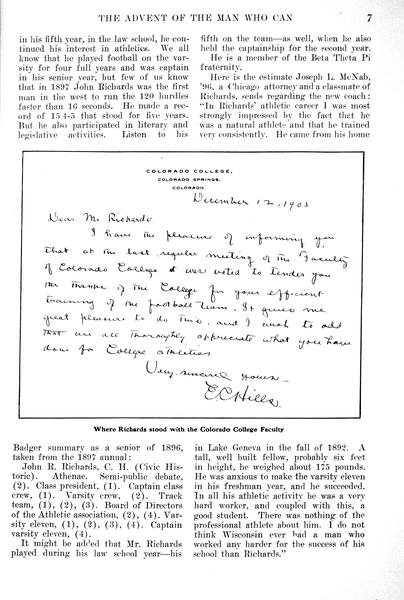 THE ADVENT OF THE MAN WHO CAN 7
in his fifth year, in the law school, he con-
tinued his interest in athletics. We all
know that he played football on the var-
sity for four years and was captain
in his senior year, but few of us know
that in 1897 John Richards was the first
man in the west to run the 120 hurdles
faster than 16 seconds. He made a rec-
ord of 15 4-5 that stood for five years.
But he also participated in literary and
legislative activities. Listen to his
fifth on the team—as well, when he also
held the captainship for the second year.
He is a member of the Beta Theta Pi
fraternity.
Here is the estimate Joseph L. McNab,
'96, a Chicago attorney and a classmate of
Richards, sends regarding the new coach:
"In Richards' athletic career I was most
strongly impressed by the fact that he
was a natural athlete and that he trained
very consistently. He came from his home
COLORADO COLLEGE,
COLORADO SPRINGS,
COLORADO.
December 12, 1903
Dear Mr. Richards.
I have the pleasure of informing you
that at the last regular meeting of the Faculty
of Colorado College it was voted to tender you
the thanks of the College for your efficient
training of the football team. It gives me
great pleasure to do this, and I wish to add
that we all thoroughly appreciate what you have
done for College athletics
Very sincerely yours—
E C Hills.
Where Richards stood with the Colorado College Faculty
Badger summary as a senior of 1896,
taken from the 1897 annual:
John R. Richards, C. H. (Civic His-
toric). Athenae. Semi-public debate,
(2). Class president, (1). Captain class
crew, (1). Varsity crew, (2). Track
team, (1), (2), (3). Board of Directors
of the Athletic association, (2), (4). Var-
sity eleven, (1), (2), (3), (4). Captain
varsity eleven, (4).
It might be added that Mr. Richards
played during his law school year—his
in Lake Geneva in the fall of 1892. A
tall, well built fellow, probably six feet
in height, he weighed about 175 pounds.
He was anxious to make the varsity eleven
in his freshman year, and he succeeded.
In all his athletic activity he was a very
hard worker, and coupled with this, a
good student. There was nothing of the
professional athlete about him. I do not
think Wisconsin ever had a man who
worked any harder for the success of his
school than Richards."